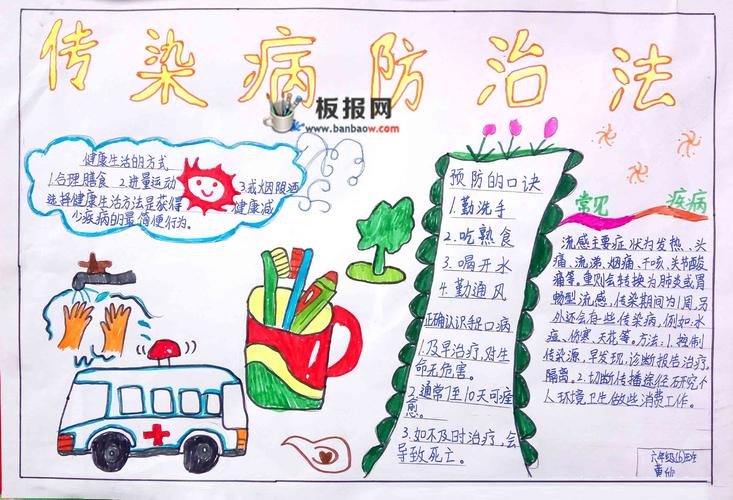 传染病防治法
板报网
www.banbaow.com
健康生活的方式
1.合理膳食 2.进量运动 3.戒烟限酒
选择健康生活方法是获得健康减
少疾病的最简便行为。
预防的口诀
1.勤洗手
2.吃熟食
3.喝开水
4.勤通风
正确认识轻口病
1.及早治疗,对生
命无危害。
2.通常7至10天可痊
愈。
3.如不及时治疗,会
导致死亡。
常见 疾病
流感主要症状为发热、头
痛、流涕、烟痛、干咳、关节酸
痛等。重则会转换为肺炎或胃
肠型流感,传染期间为1周,另
外还会有些传染病,例如:水
痘、伤寒、天花等。方法:1.控制
传染源、早发现,诊断报告治疗,
隔离。2.切断传播途径.研究个
人环境卫生做些消费工作。
六年级(6)班